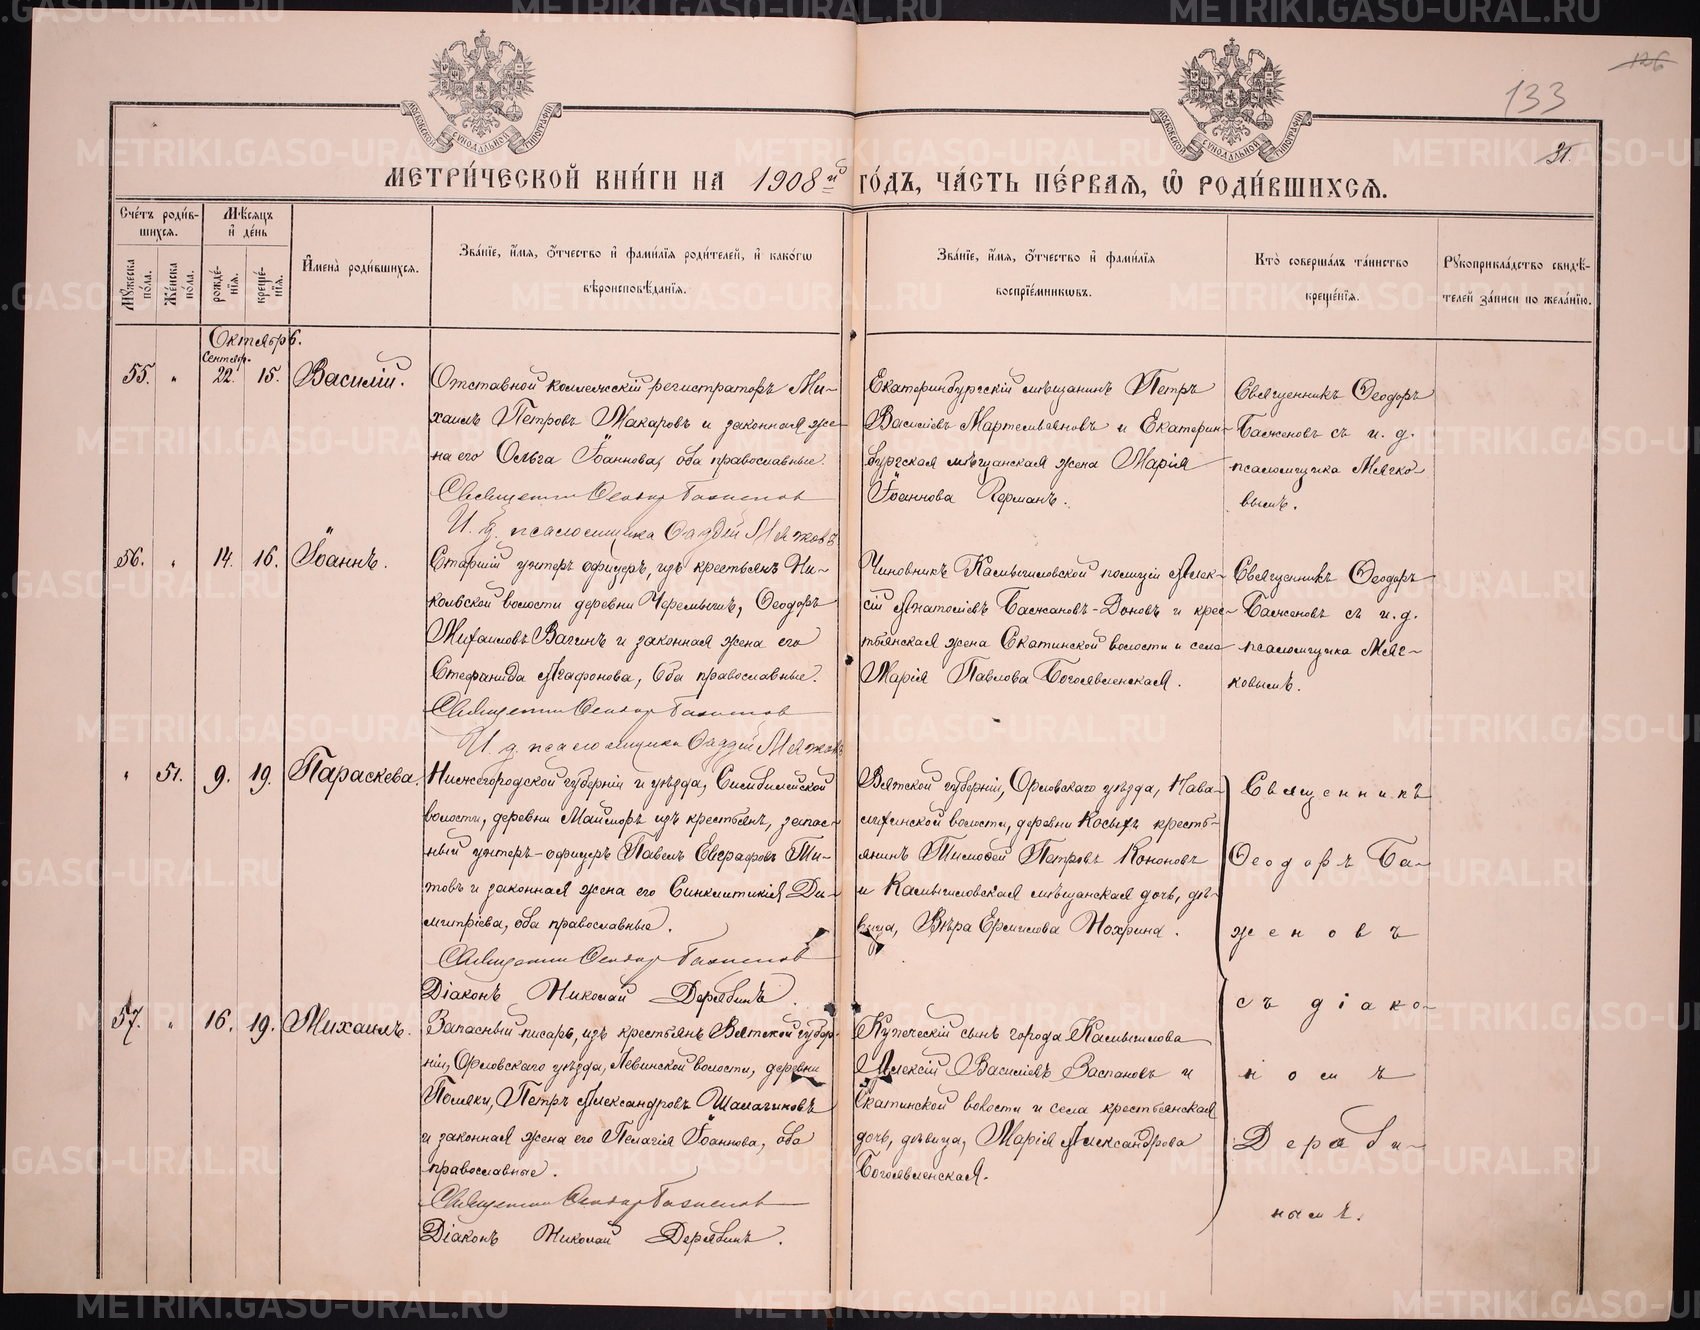 126
133
31.
МОСКОВСКОЙ СѴНОДАЛЬНОЙ ТИПОГРАФІИ
МОСКОВСКОЙ СѴНОДАЛЬНОЙ ТИПОГРАФІИ
МЕТРИ́ЧЕСКОЙ КНИ́ГИ НА 1908й ГО́ДЪ, ЧА́СТЬ ПЕ́РВАЯ, Ѡ҆ РОДИ́ВШИХСЯ.
Сче́тъ роди́в-
шихся.
Мѣ́сяцъ
и҆ де́нь
Мꙋ́жеска
по́ла.
Же́нска
по́ла.
рожде́-
нїя.
креще́-
нїя.
И҆мена̀ роди́вшихся.
Зва́нїе, и҆́мя, ѻ҆́тчество и҆ фами́лїя роди́телей, и҆ како́гѡ
вѣроисповѣ́данїя.
Зва́нїе, и҆́мя, ѻ҆́тчество и҆ фами́лїя
воспрїе́мникѡвъ.
Кто̀ соверша́лъ та́инство
креще́нїя.
Рꙋкоприкла́дство свидѣ́-
телей за́писи по жела́нїю.
Октябрь.
Сентяр.
55. „ 22. 15. Василій.
Отставной коллежскій регистраторъ Ми-
хаилъ Петровъ Макаровъ и законная же-
на его Ольга Іоаннова, оба православные.
Священникъ Ѳеодоръ Баженовъ
И. д. псаломщика Ѳаддей Мячковъ
Екатеринбургскій мѣщанинъ Петръ
Василіевъ Мартемьяновъ и Екатерин-
бургская мѣщанская жена Марія
Іоаннова Германъ.
Священникъ Ѳеодоръ
Баженовъ съ и. д.
псаломщика Мячко-
вымъ.
56. „ 14. 16. Іоаннъ.
Старшій унтеръ офицеръ, изъ крестьянъ Ни-
кольской волости деревни Черемышъ, Ѳеодоръ
Михаиловъ Вагинъ и законная жена его
Стефанида Агафонова, оба православные.
Священникъ Ѳеодоръ Баженовъ
И. д. псаломщика Ѳаддей Мячковъ
Чиновникъ Камышловской полиціи Алек-
сій Анатоліевъ Бажановъ-Доновъ и крес-
тьянская жена Скатинской волости и села
Марія Павлова Богоявленская.
Священникъ Ѳеодоръ
Баженовъ съ и. д.
псаломщика Мяч-
ковымъ.
„ 51. 9. 19. Параскева.
Нижегородской губерніи и уѣзда, Симбилейской
волости, деревни Майморъ изъ крестьянъ, запас-
ный унтеръ-офицеръ Павелъ Евграфовъ Ти-
товъ и законная жена его Синклитикія Ди-
митріева, оба православные.
Священникъ Ѳеодоръ Баженовъ
Діаконъ Николай Дерябинъ.
Вятской губерніи, Орловскаго уѣзда, Кава-
лихинской волости, деревни Косыхъ кресть-
янинъ Тимоѳей Петровъ Кононовъ
и Камышловская мѣщанская дочь, дѣ-
вица, Вѣра Ермилова Нохрина.
Священникъ
Ѳеодоръ Ба-
женовъ
съ діако-
номъ
Деряби-
нымъ.
57. „ 16. 19. Михаилъ.
Запасный писарь, изъ крестьянъ Вятской губер-
ніи, Орловскаго уѣзда, Левинской волости, деревни
Поляки, Петръ Александровъ Шалагиновъ
и законная жена его Пелагія Іоаннова, оба
православные.
Священникъ Ѳеодоръ Баженовъ
Діаконъ Николай Дерябинъ.
Купеческій сынъ города Камышлова
Алексій Василіевъ Заспановъ и
Скатинской волости и села крестьянская
дочь, дѣвица, Марія Александрова
Богоявленская.